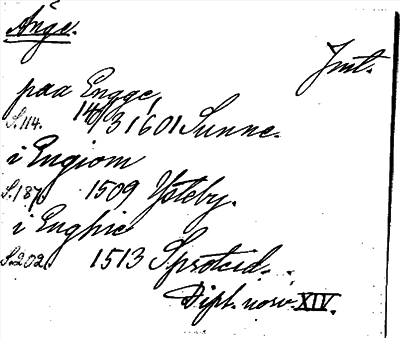 Änge.
Jmt.
paa Engge,
S. 114. 14/3 1601 Sunne.
i Engiom
S. 187. 1509 Ysteby.
i Enghie
S. 202. 1513
Dipl. norv. XIV.